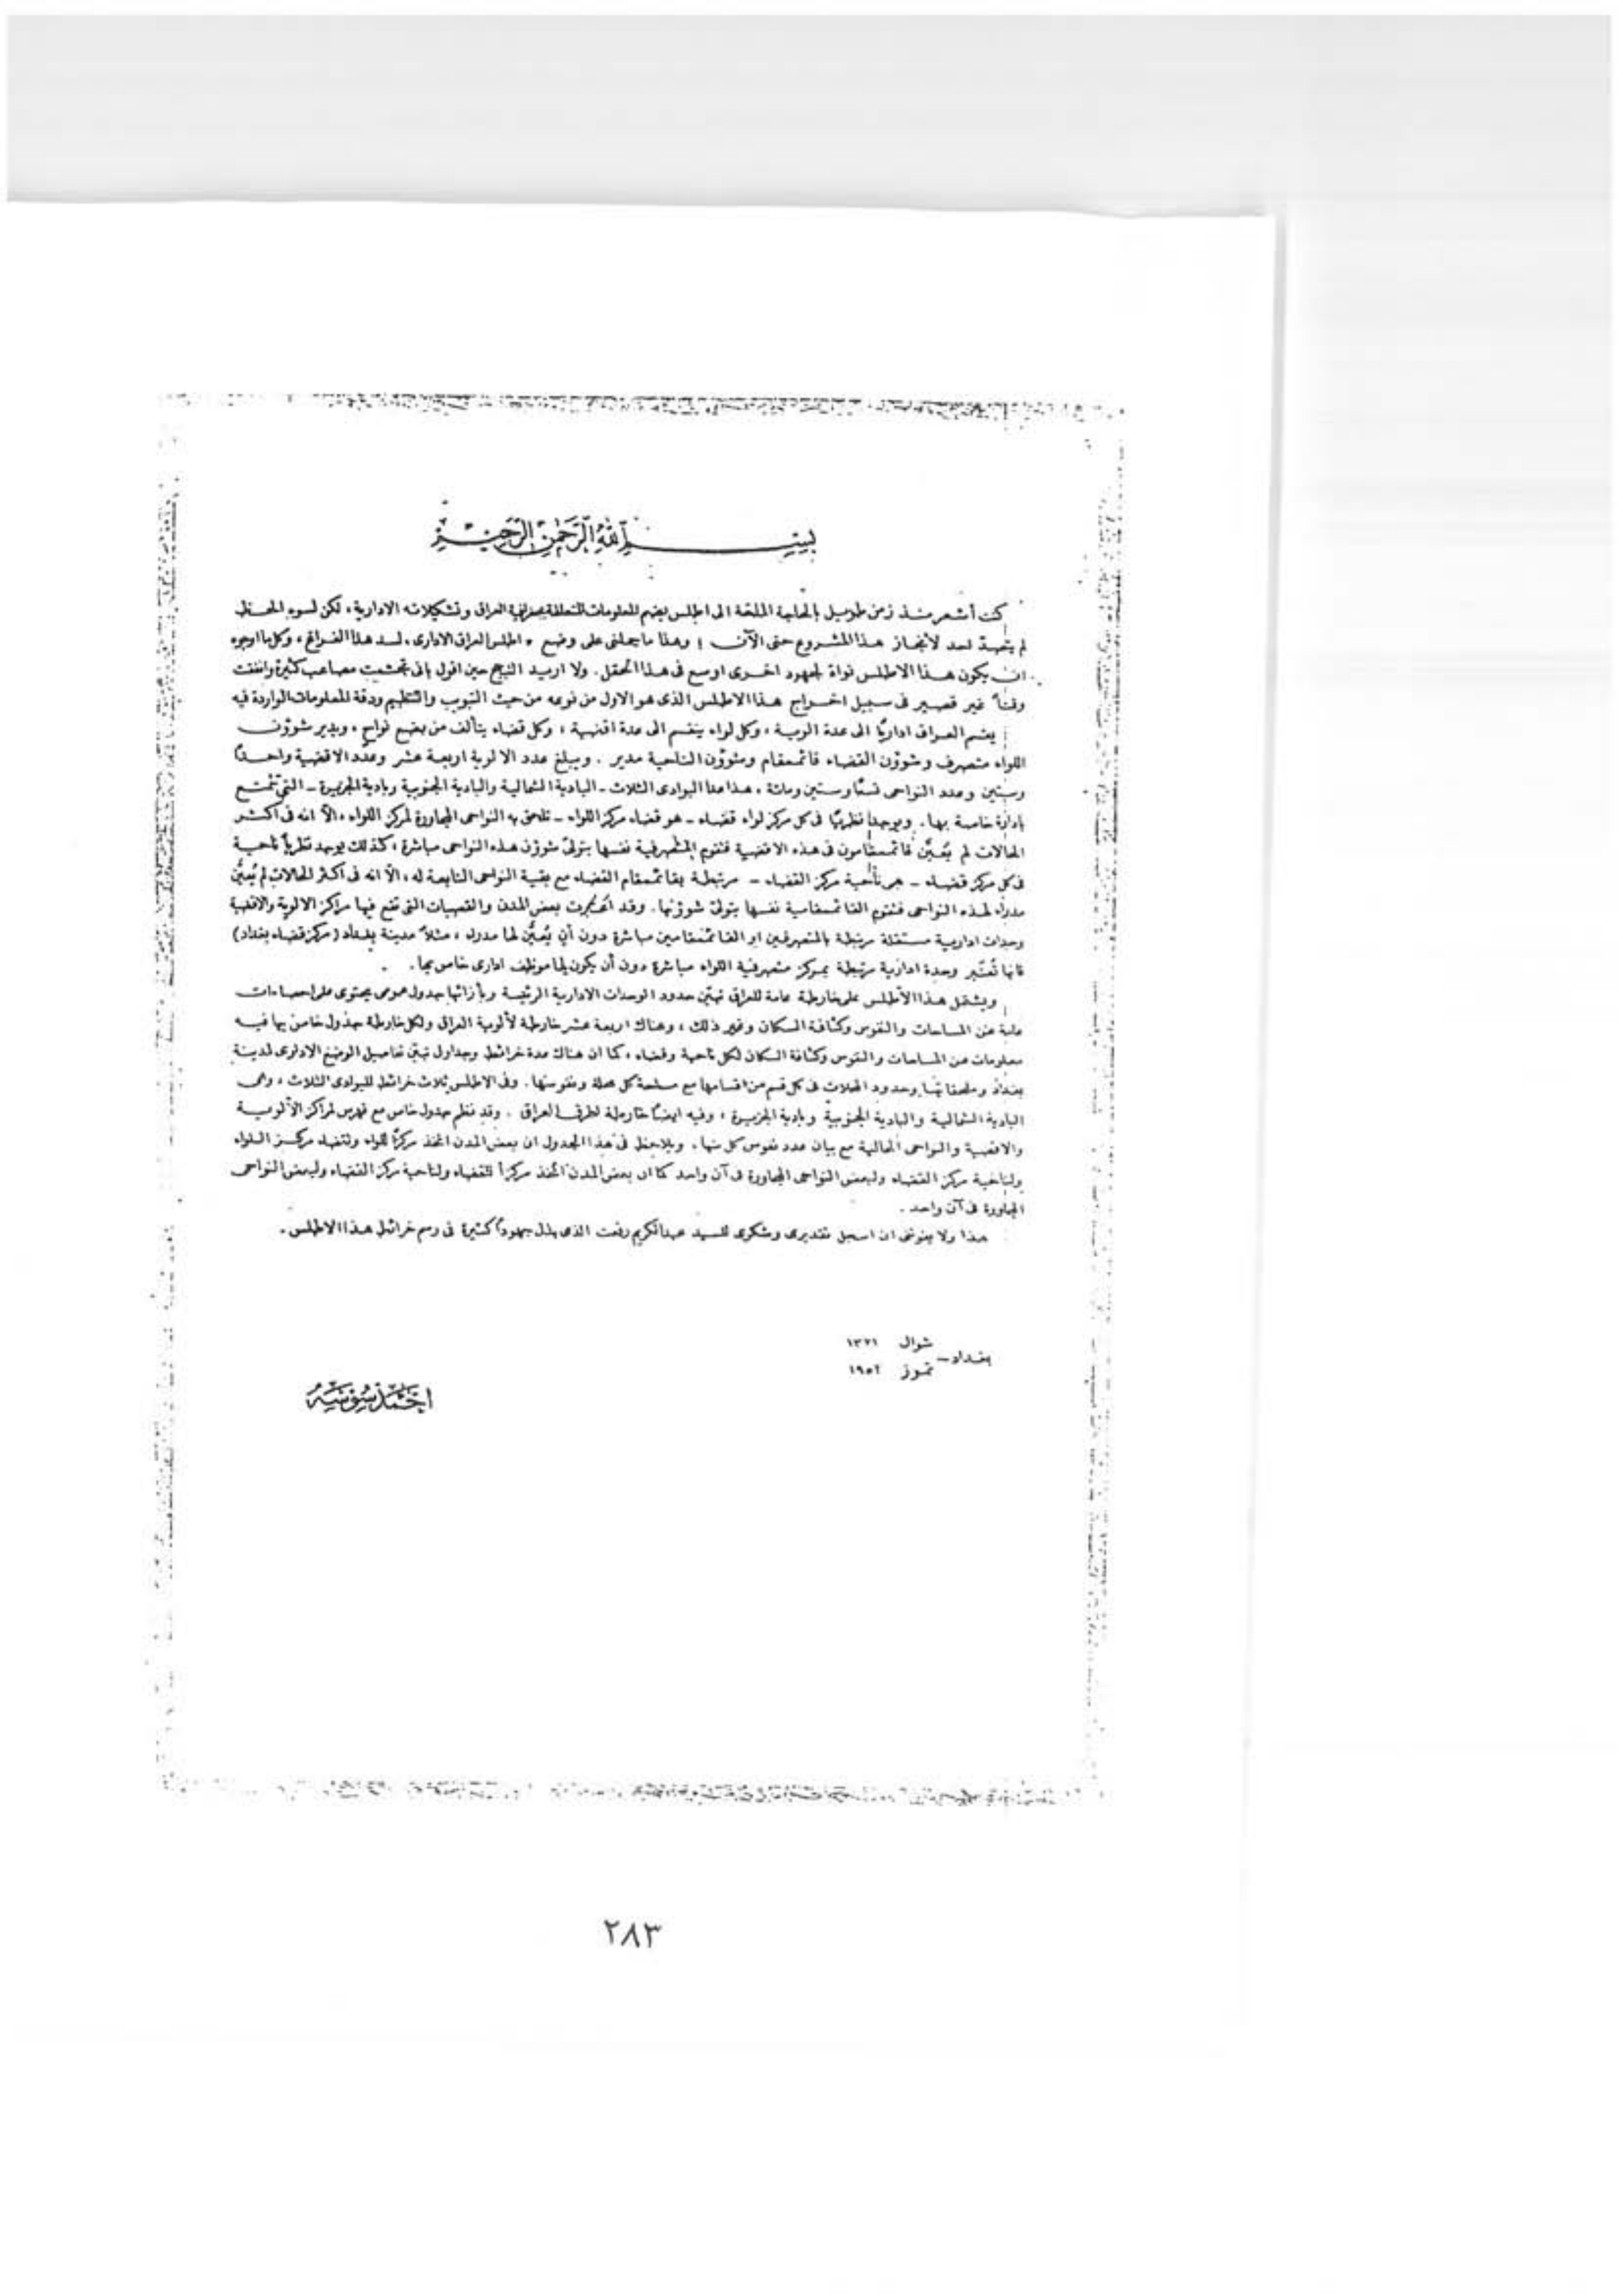 بسم الله الرحمن الرحيم
كنت أشعر منذ زمن طويل بالحاجة الملحة الى اطلس يضم المعلومات المتعلقة بجغرافية العراق وتشكيلاته الادارية، لكن لسوء الحظ
لم يتصد احد لانجاز هذا المشروع حتى الآن؛ وهذا ما حملنى على وضع «اطلس العراق الادارى» لسد هذا الفراغ، وكل ما ارجوه
ان يكون هذا الاطلس نواة لجهود اخرى اوسع فى هذا الحقل. ولا اريد التبجح حين اقول بانى تجشمت مصاعب كثيرة وانفقت
وقتاً غير قصير فى سبيل اخراج هذا الاطلس الذى هو الاول من نوعه من حيث التبويب والتنظيم ودقة المعلومات الواردة فيه
يقسم العراق اداريًا الى عدة الوية، وكل لواء ينقسم الى عدة اقضية، وكل قضاء يتألف من بضع نواح، ويدير شوؤن
اللواء متصرف وشوؤن القضاء قائمقام وشوؤن الناحية مدير. ويبلغ عدد الالوية اربعة عشر وعدد الاقضية واحداً
وستين وعدد النواحى تسعًا وستين ومائة، هذا عدا البوادى الثلاث ـ البادية الشمالية والبادية الجنوبية وبادية الجزيرة ـ التى تتمتع
بادارة خاصة بها. ويوجد نظريًا فى كل مركز لواء قضاء ـ هو قضاء مركز اللواء ـ تلحق به النواحى المجاورة لمركز اللواء، الاّ انه فى اكثر
الحالات لم يُعيَّن قائمقامون فى هذه الاقضية فتقوم المتصرفية نفسها بتولى شوؤن هذه النواحى مباشرة، كذلك يوجد نظرياً ناحية
فى كل مركز قضاء ـ هى ناحية مركز القضاء ـ مرتبطة بقائمقام القضاء مع بقية النواحى التابعة له، الاّ انه فى اكثر الحالات لم يُعيَّن
مدراء لهذه النواحى فتقوم القائمقامية نفسها بتولى شوؤنها. وقد اعتبرت بعض المدن والقصبات التى تقع فيها مراكز الالوية والاقضية
وحدات ادارية مستقلة مرتبطة بالمتصرفين او القائمقامين مباشرة دون أن يُعيَّن لها مدراء، مثلاً مدينة بغداد (مركز قضاء بغداد)
فانها تُعتبر وحدة ادارية مرتبطة بمركز متصرفية اللواء مباشرة دون أن يكون لها موظف ادارى خاص بها.
ويشتمل هذا الأطلس على خارطة عامة للعراق تبيّن حدود الوحدات الادارية الرئيسة وبأزائها جدول عمومى يحتوى على احصاءات
عامة عن المساحات والنفوس وكثافة السكان وغير ذلك، وهناك اربعة عشر خارطة لألوية العراق ولكل خارطة جدول خاص بها فيه
معلومات عن المساحات والنفوس وكثافة السكان لكل ناحية وقضاء، كما ان هناك عدة خرائط وجداول تبيّن تفاصيل الوضع الادارى لمدينة
بغداد وملحقاتها وحدود المحلات فى كل قسم من اقسامها مع مساحة كل محلة ونفوسها. وفى الاطلس ثلاث خرائط للبوادى الثلاث، وهى
البادية الشمالية والبادية الجنوبية وبادية الجزيرة، وفيه ايضاً خارطة لطرق العراق. وقد نظم جدول خاص مع فهرس لمراكز الألوية
والاقضية والنواحى الحالية مع بيان عدد نفوس كل منها. ويلاحظ فى هذا الجدول ان بعض المدن اتخذ مركزًا للواء ولقضاء مركز اللواء
ولناحية مركز القضاء ولبعض النواحى المجاورة فى آن واحد كما ان بعض المدن اتخذ مركزاً للقضاء ولناحية مركز القضاء ولبعض النواحى
المجاورة فى آن واحد.
هذا ولا يفوتنى ان اسجل تقديرى وشكرى للسيد عبدالكريم رفعت الذى بذل جهوداً كثيرة فى رسم خرائط هذا الاطلس.
شوال ١٣٧١
بغداد ـ
تموز ١٩٥٢
احمد سوسه
٢٨٣